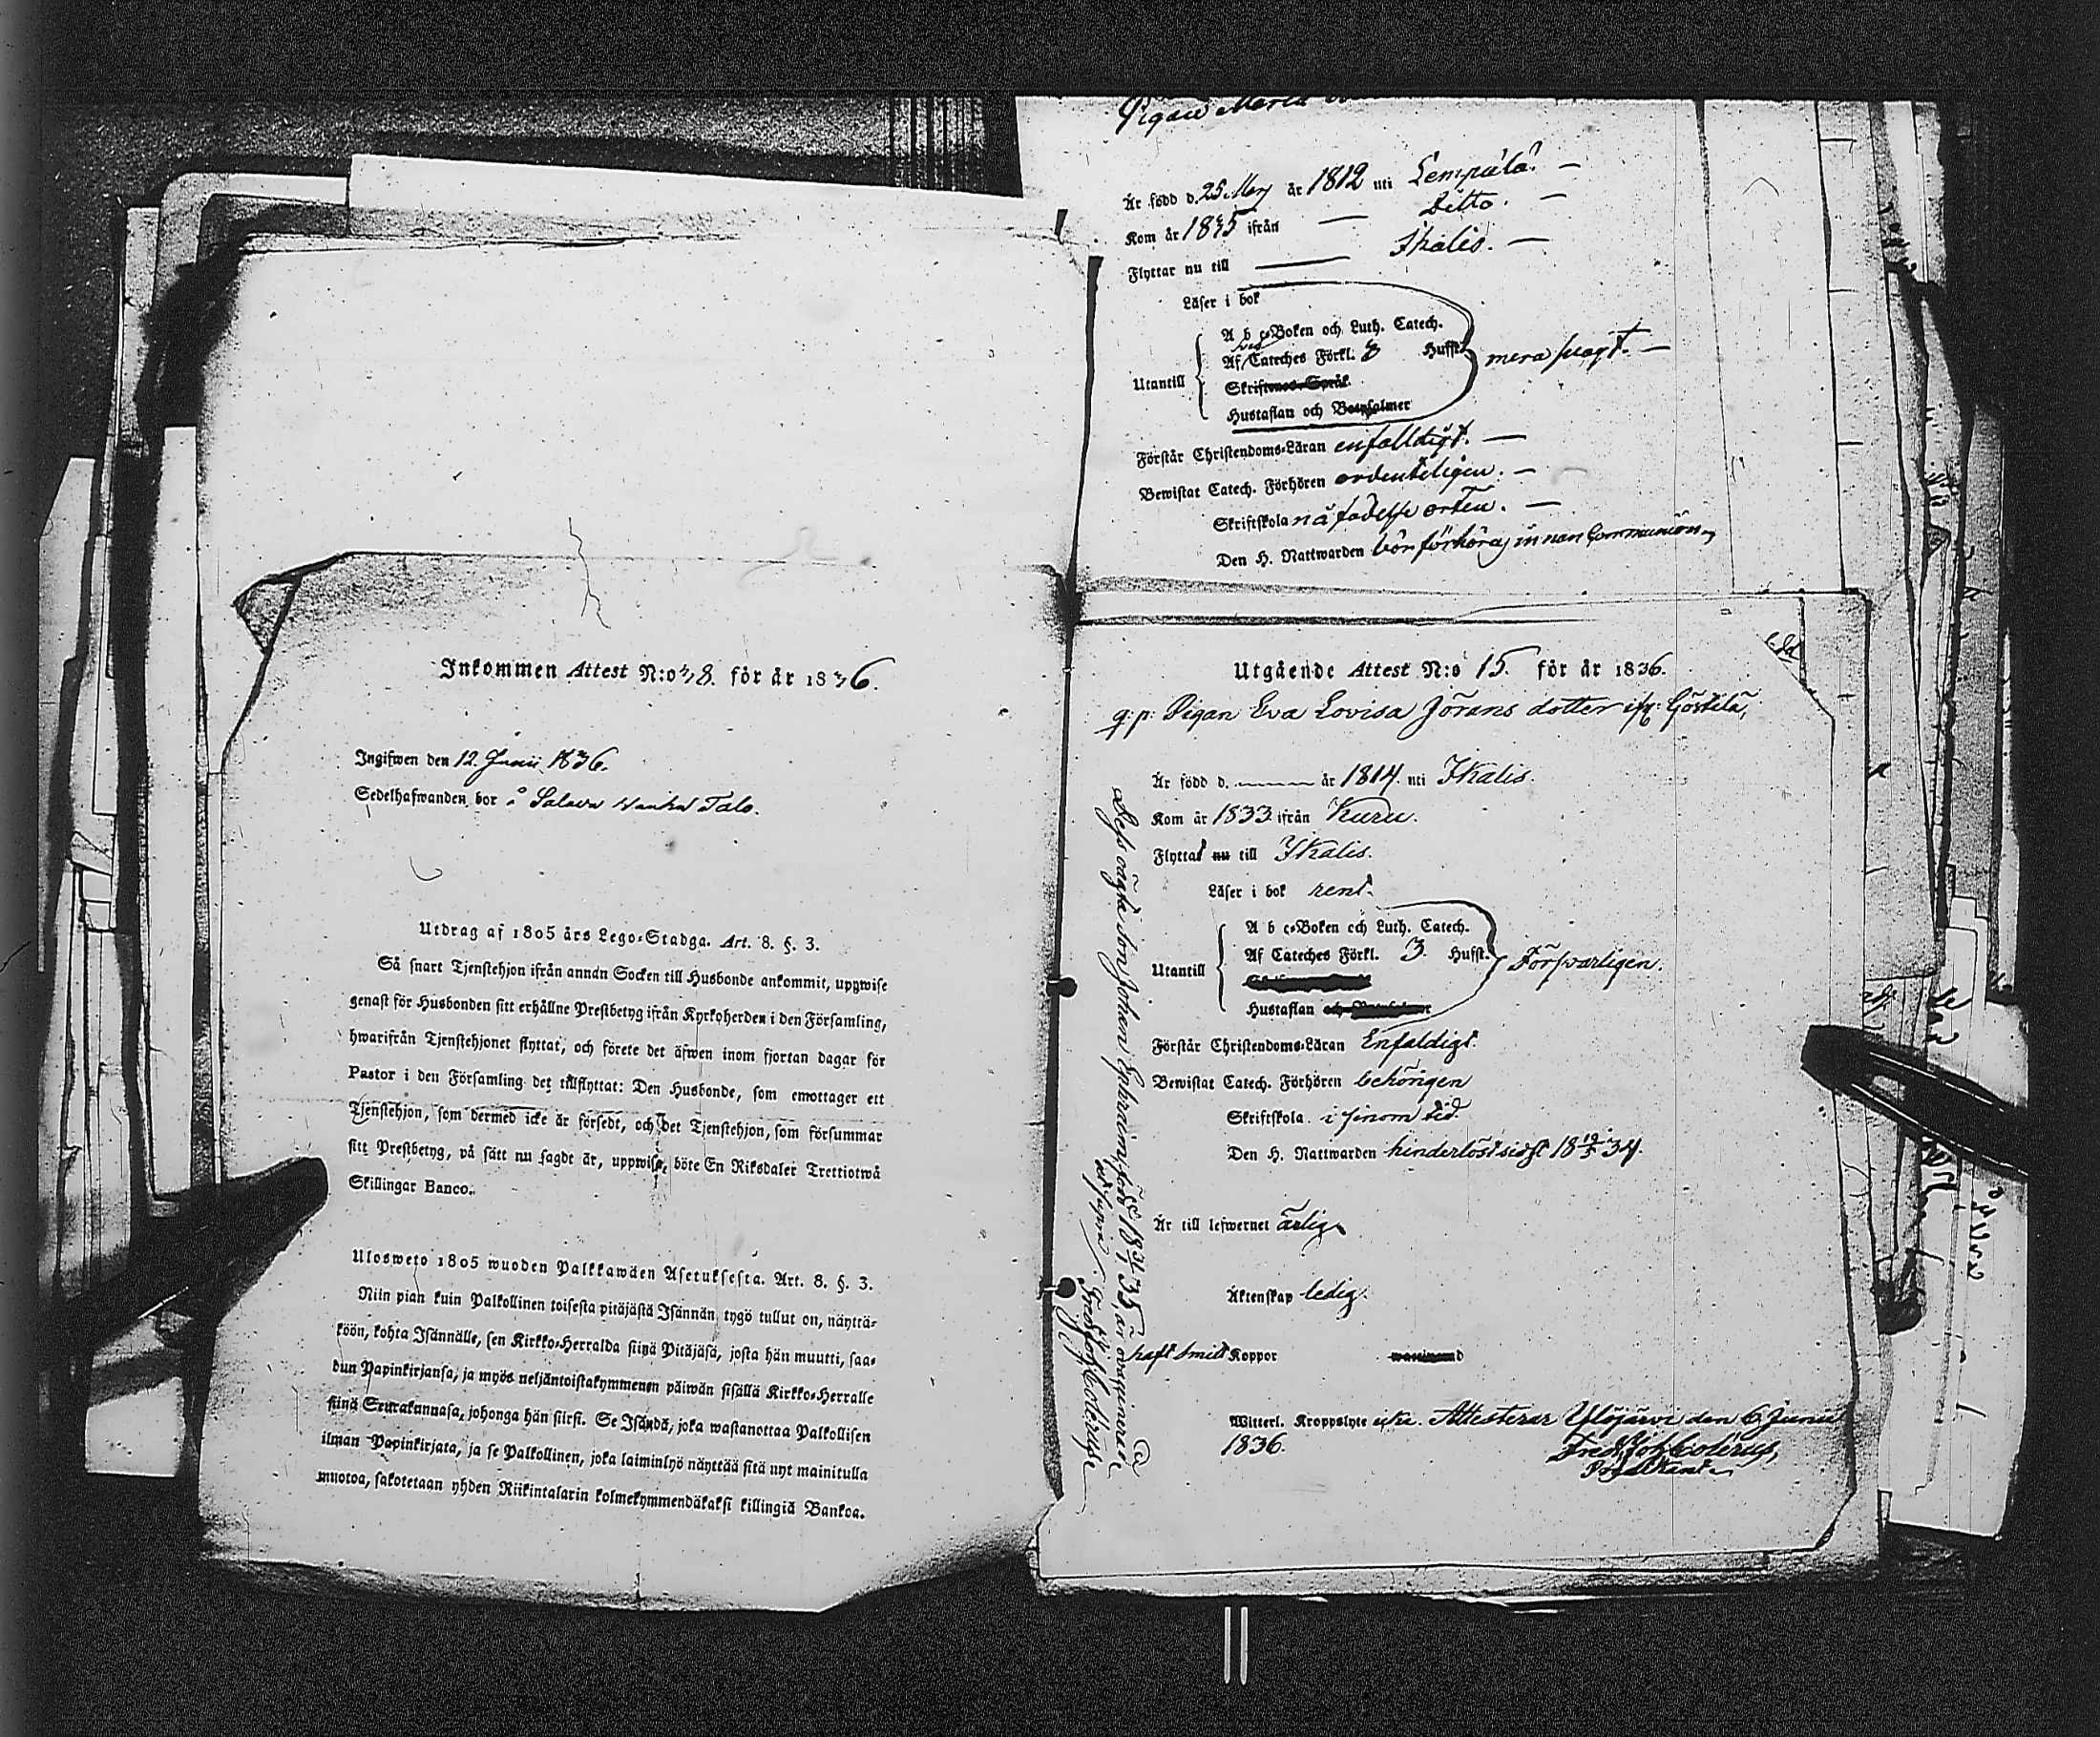 Inkommen Attest N:o 38. för år 1836.
Ingifwen den 12. Junii 1836.
Sedelhafwanden bor å Salava Wanha Talo.
Utdrag af 1805 års Lego-Stadga. Art. 8. §. 3.
Så snart Tjenstehjon ifrån annan Socken till Husbonde ankommit, uppwise
genast för Husbonden sitt erhållne Prestbetyg ifrån Kyrkoherden i den Församling,
hwarifrån Tjenstehjonet flyttat, och förete det äfwen inom fjortan dagar för
Pastor i den Församling det tillflyttat: Den Husbonde, som emottager ett
Tjenstehjon, som dermed icke är försedt, och det Tjenstehjon, som försummar
sitt Prestbetyg, på sätt nu sagdt är, uppwisa, böte En Riksdaler Trettiotwå
Skillingar Banco.
Ulosweto 1805 wuoden Palkkawäen Asetuksesta. Art. 8. §. 3.
Niin pian kuin Palkollinen toisesta pitäjästä Isännän tygö tullut on, näyttä-
köön, kohta Isännälle, sen Kirkko-Herralda siinä Pitäjäsä, josta hän muutti, saa-
dun Papinkirjansa, ja myös neljäntoistakymmenen päiwän sisällä Kirkko-Herralle
siinä Seurakunnasa, johonga hän siirsi. Se Isändä, joka wastanottaa Palkollisen
ilman Papinkirjata, ja se Palkollinen, joka laiminlyö näyttää sitä nyt mainitulla
muotoa, sakotetaan yhden Riikintalarin kolmekymmendäkaksi killingiä Bankoa.
Pigan Maria
Är född d. 25. Marz år 1812 uti Lempälä. —
Kom år 1835 ifrån — Ditto. —
Flyttar nu till — Ikalis. —
Läser i bok
A b c-Boken och Luth. Catech.
Af Cateches Förkl. 3 Hufst. mera svagt. —
Utantill
Skriftenes Språk
Hustaflan och Botpsalmer
Förstår Christendoms-Läran enfalldigt. —
Bewistat Catech. Förhören ordenteligen. —
Skriftskola på födelse orten. —
Den H. Nattwarden bör förhöras innan Communion
Utgående Attest N:o 15. för år 1836.
q: p: Pigan Eva Lovisa Jörans dotter ifr: Göstilä,
Är född d. — år 1814. uti Ikalis.
Kom år 1833. ifrån Kuru.
Flyttat nu till Ikalis.
Läser i bok rent.
A b c-Boken och Luth. Catech.
Af Cateches Förkl. 3. Hufst.
Utantill Försvarligen.
Hustaflan och
Förstår Christendoms-Läran Enfaldigt.
Bewistat Catech. Förhören behörigen
Skriftskola i sinom tid
Den H. Nattwarden hinderlöst sidst 18 19/5 34.
Är till lefwernet ärlig
Äktenskap ledig.
haft Smitt Koppor
Witterl. Kroppslyte icke. Attesterar Ylöjärvi den 6 Junii
1836.
Fred. Joh. Colerus,
Dess oägta Son Johan Ephraim, född 18 31/1 35, är ovaccinerad
ut supra. Fred. Joh. Colerus